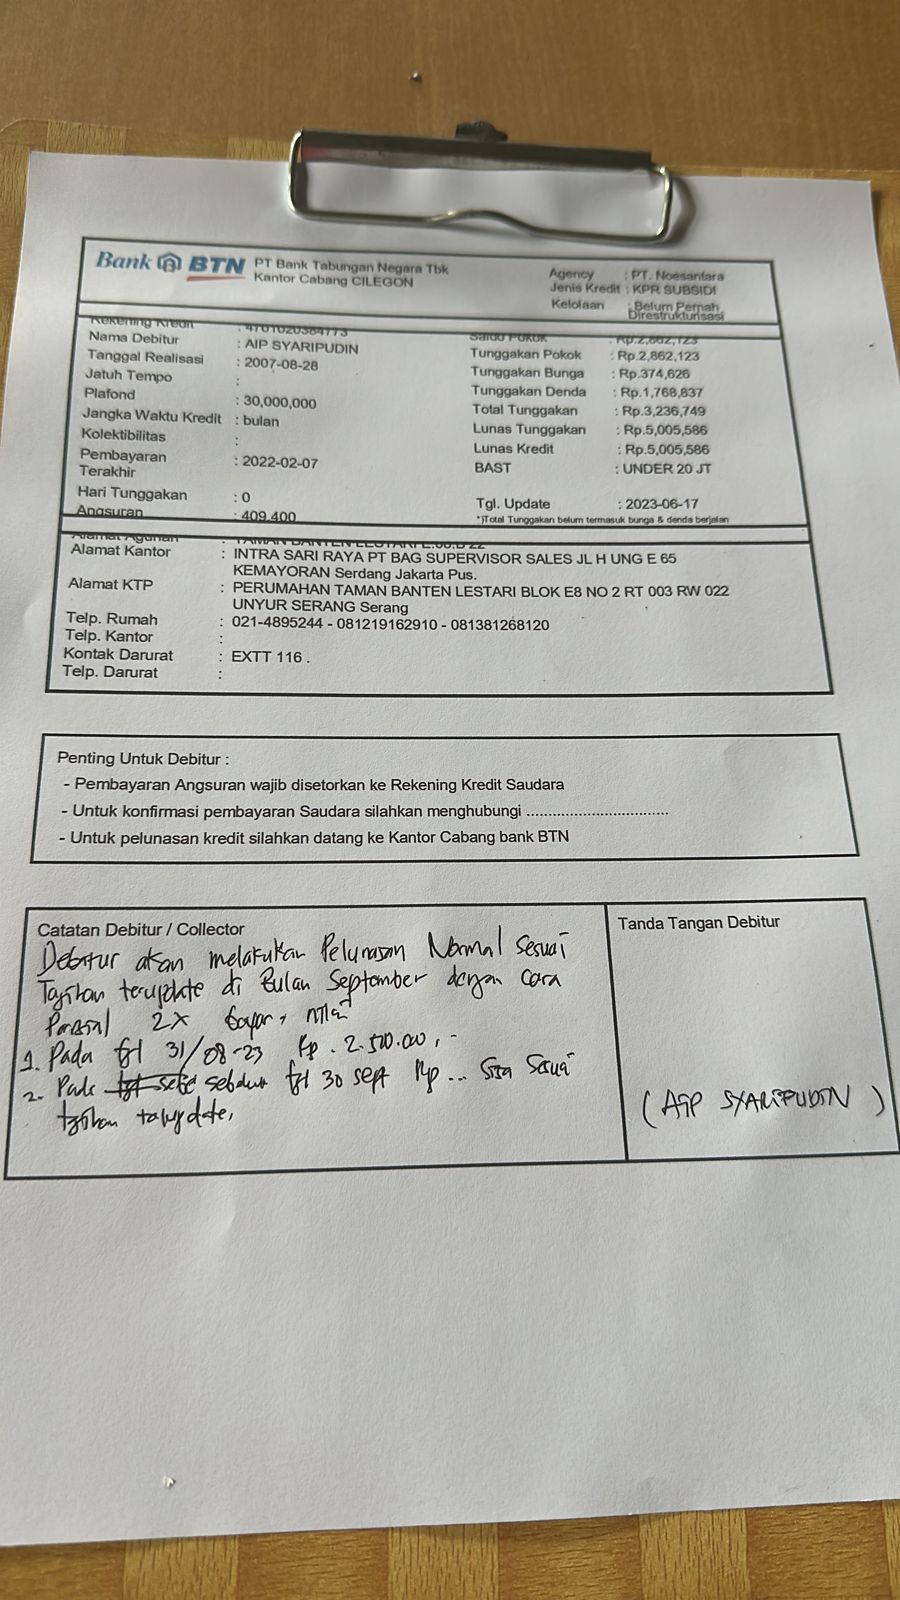 Bank BTN PT Bank Tabungan Negara Tbk
Kantor Cabang CILEGON
Agency : PT. Noesantara
Jenis Kredit : KPR SUBSIDI
Kelolaan : Belum Pernah
Direstrukturisasi
Rekening Kredit : 4701020384773
Nama Debitur : AIP SYARIPUDIN
Tanggal Realisasi : 2007-08-28
Jatuh Tempo :
Plafond : 30,000,000
Jangka Waktu Kredit : bulan
Kolektibilitas :
Pembayaran : 2022-02-07
Terakhir
Hari Tunggakan : 0
Angsuran : 409,400
Saldo Pokok : Rp.2,862,123
Tunggakan Pokok : Rp.2,862,123
Tunggakan Bunga : Rp.374,626
Tunggakan Denda : Rp.1,768,837
Total Tunggakan : Rp.3,236,749
Lunas Tunggakan : Rp.5,005,586
Lunas Kredit : Rp.5,005,586
BAST : UNDER 20 JT
Tgl. Update : 2023-06-17
*)Total Tunggakan belum termasuk bunga & denda berjalan
Alamat Agunan : TAMAN BANTEN LESTARI
Alamat Kantor : INTRA SARI RAYA PT BAG SUPERVISOR SALES JL H UNG E 65
KEMAYORAN Serdang Jakarta Pus.
Alamat KTP : PERUMAHAN TAMAN BANTEN LESTARI BLOK E8 NO 2 RT 003 RW 022
UNYUR SERANG Serang
Telp. Rumah : 021-4895244 - 081219162910 - 081381268120
Telp. Kantor :
Kontak Darurat : EXTT 116 .
Telp. Darurat :
Penting Untuk Debitur :
- Pembayaran Angsuran wajib disetorkan ke Rekening Kredit Saudara
- Untuk konfirmasi pembayaran Saudara silahkan menghubungi .................................
- Untuk pelunasan kredit silahkan datang ke Kantor Cabang bank BTN
Catatan Debitur / Collector
Debitur akan melakukan Pelunasan Normal Sesuai
Tagihan terupdate di Bulan September dengan cara
Parsial 2X Bayar, nilai
1. Pada tgl 31/08-23 Rp. 2.500.000,-
2. Pada sebelum tgl 30 sept Rp... Sisa Sesuai
tagihan terupdate.
Tanda Tangan Debitur
(AIP SYARIPUDIN)